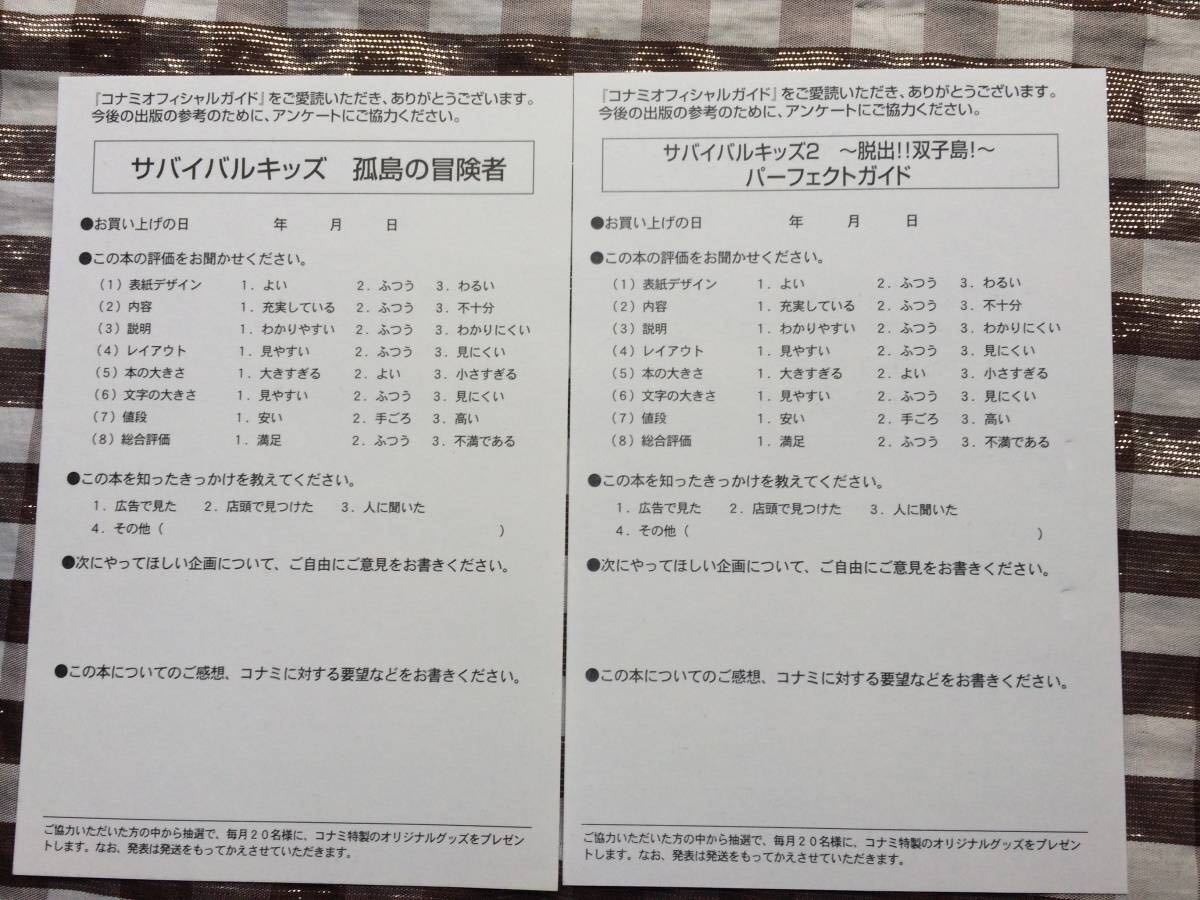 『コナミオフィシャルガイド』をご愛読いただき、ありがとうございます。
今後の出版の参考のために、アンケートにご協力ください。
サバイバルキッズ 孤島の冒険者
●お買い上げの日 年 月 日
●この本の評価をお聞かせください。
（1）表紙デザイン 1．よい 2．ふつう 3．わるい
（2）内容 1．充実している 2．ふつう 3．不十分
（3）説明 1．わかりやすい 2．ふつう 3．わかりにくい
（4）レイアウト 1．見やすい 2．ふつう 3．見にくい
（5）本の大きさ 1．大きすぎる 2．よい 3．小さすぎる
（6）文字の大きさ 1．見やすい 2．ふつう 3．見にくい
（7）値段 1．安い 2．手ごろ 3．高い
（8）総合評価 1．満足 2．ふつう 3．不満である
●この本を知ったきっかけを教えてください。
1．広告で見た 2．店頭で見つけた 3．人に聞いた
4．その他（ ）
●次にやってほしい企画について、ご自由にご意見をお書きください。
●この本についてのご感想、コナミに対する要望などをお書きください。
ご協力いただいた方の中から抽選で、毎月20名様に、コナミ特製のオリジナルグッズをプレゼン
トします。なお、発表は発送をもってかえさせていただきます。
『コナミオフィシャルガイド』をご愛読いただき、ありがとうございます。
今後の出版の参考のために、アンケートにご協力ください。
サバイバルキッズ2 〜脱出!!双子島!〜
パーフェクトガイド
●お買い上げの日 年 月 日
●この本の評価をお聞かせください。
（1）表紙デザイン 1．よい 2．ふつう 3．わるい
（2）内容 1．充実している 2．ふつう 3．不十分
（3）説明 1．わかりやすい 2．ふつう 3．わかりにくい
（4）レイアウト 1．見やすい 2．ふつう 3．見にくい
（5）本の大きさ 1．大きすぎる 2．よい 3．小さすぎる
（6）文字の大きさ 1．見やすい 2．ふつう 3．見にくい
（7）値段 1．安い 2．手ごろ 3．高い
（8）総合評価 1．満足 2．ふつう 3．不満である
●この本を知ったきっかけを教えてください。
1．広告で見た 2．店頭で見つけた 3．人に聞いた
4．その他（ ）
●次にやってほしい企画について、ご自由にご意見をお書きください。
●この本についてのご感想、コナミに対する要望などをお書きください。
ご協力いただいた方の中から抽選で、毎月20名様に、コナミ特製のオリジナルグッズをプレゼン
トします。なお、発表は発送をもってかえさせていただきます。